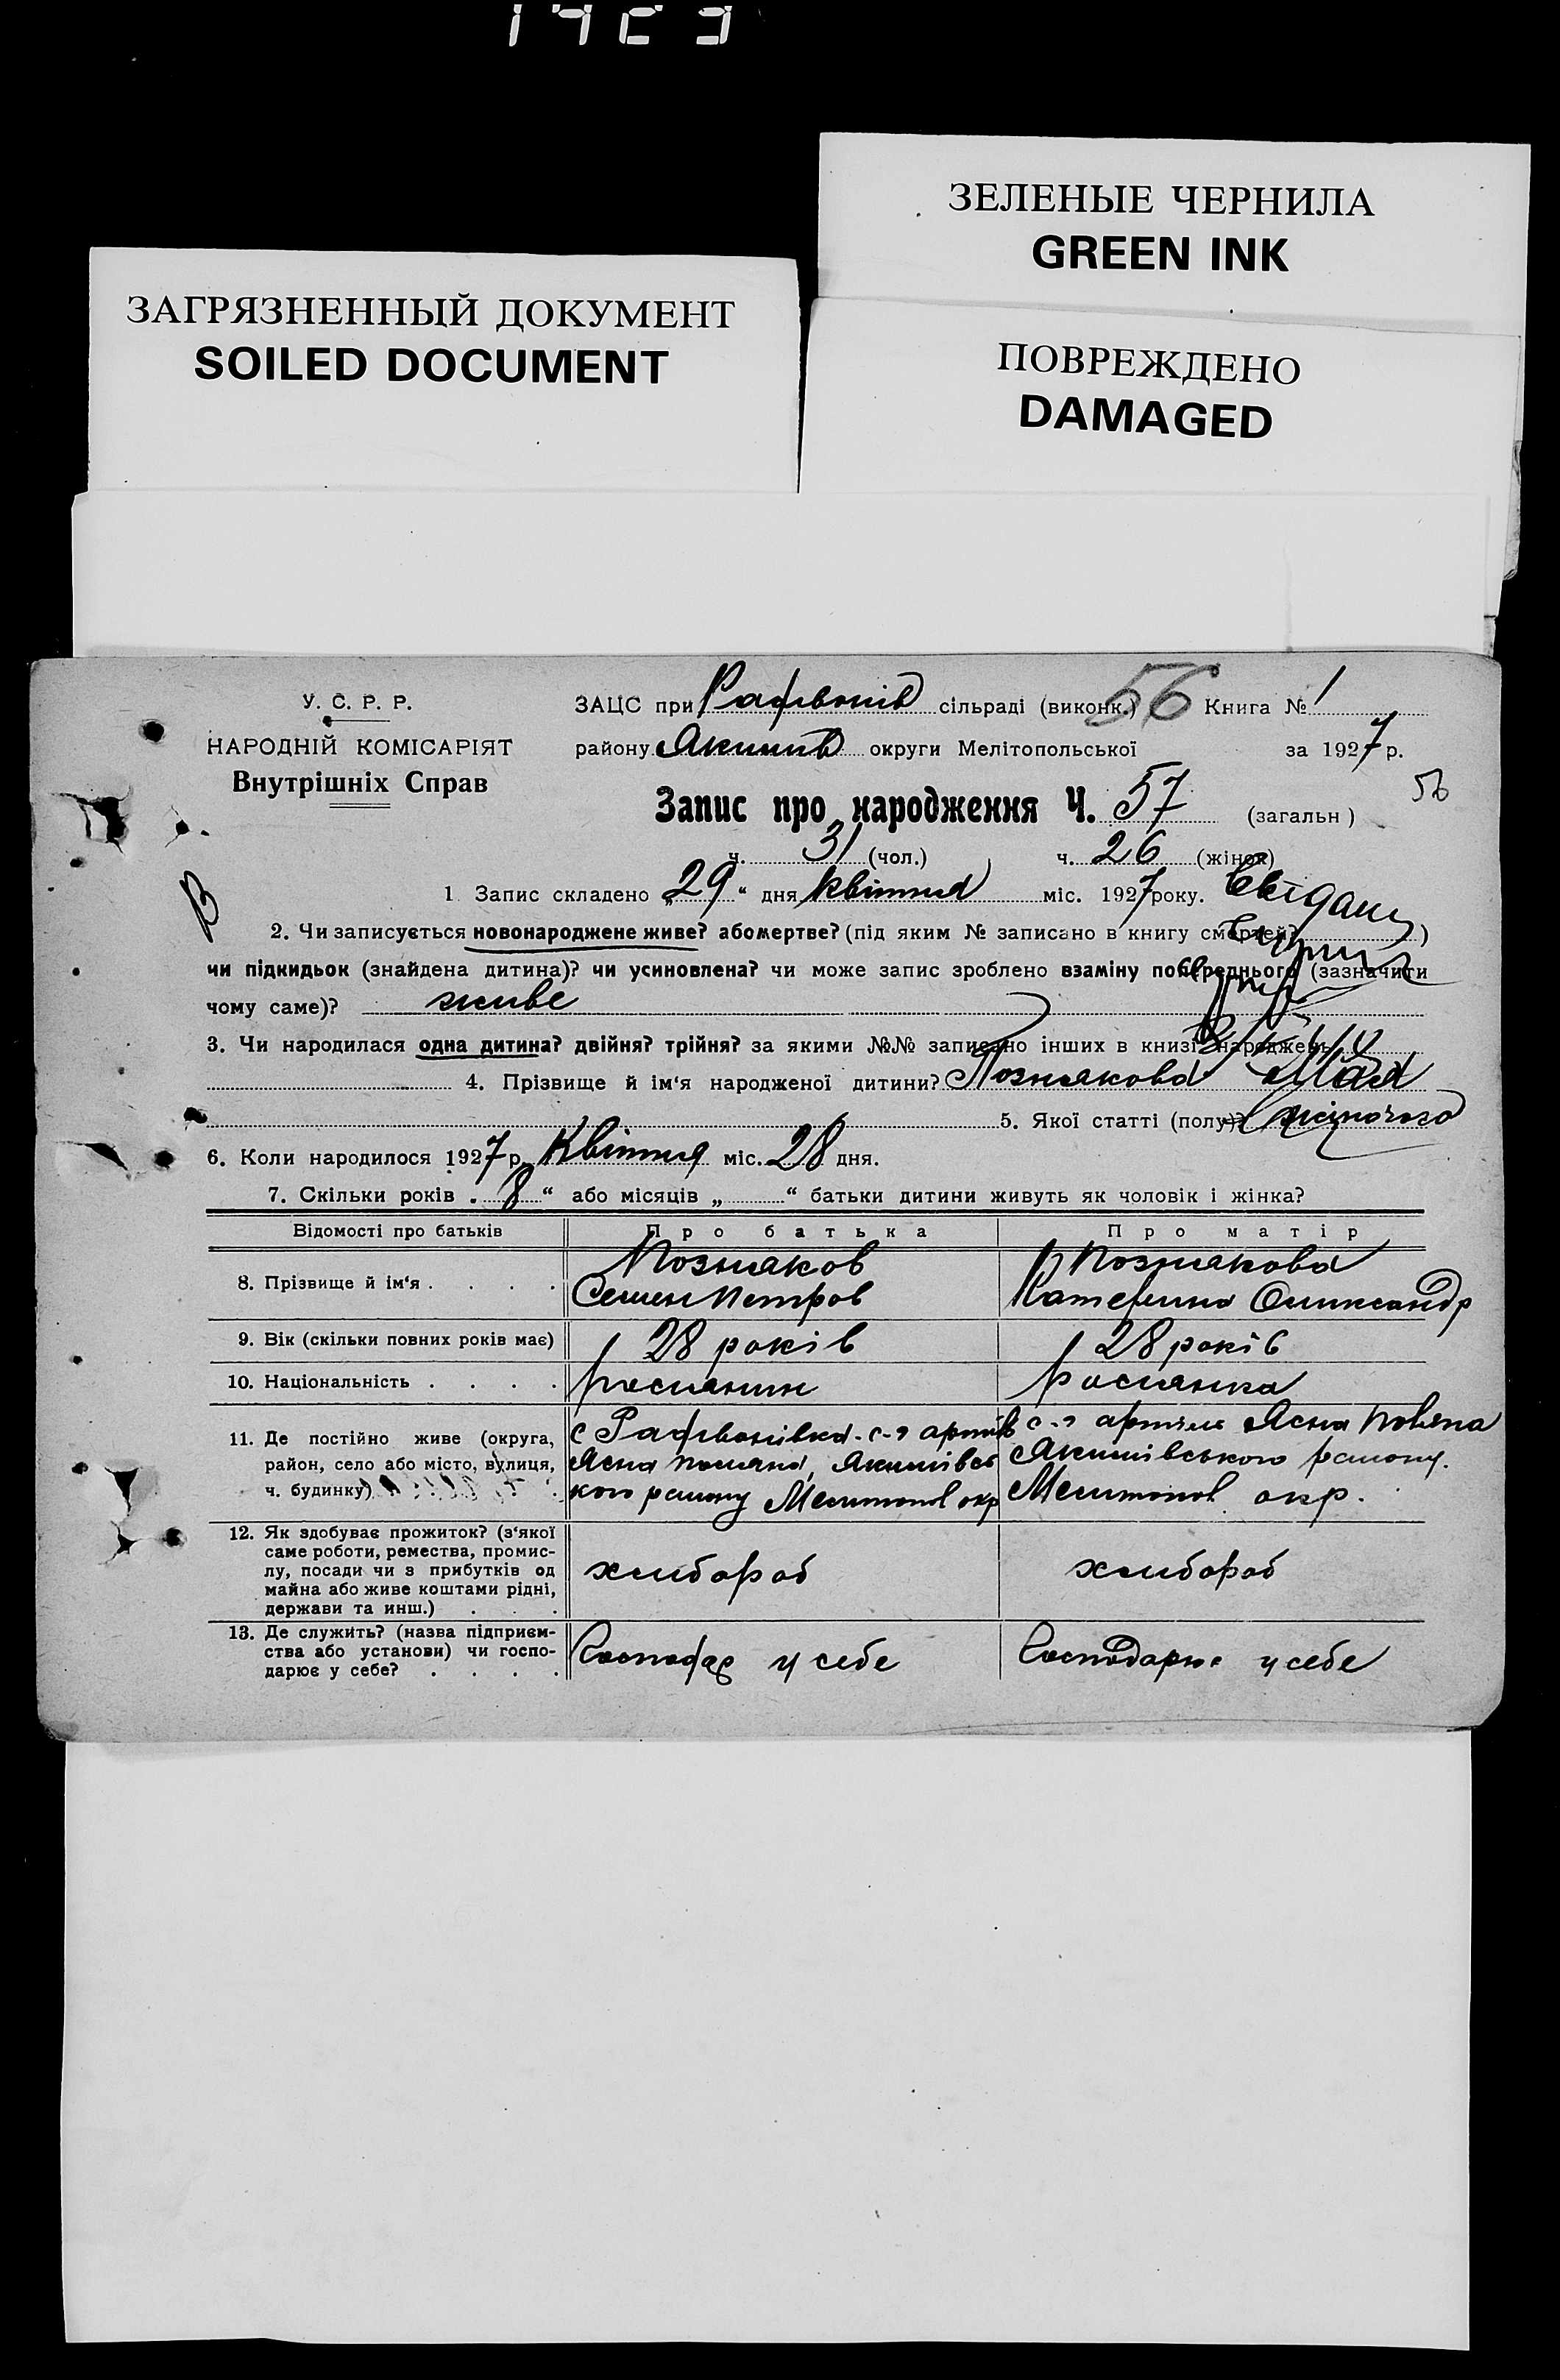 ЗЕЛЕНЫЕ ЧЕРНИЛА
GREEN INK
ЗАГРЯЗНЕННЫЙ ДОКУМЕНТ
SOILED DOCUMENT
ПОВРЕЖДЕНО
DAMAGED
У. С. Р. Р.
НАРОДНІЙ КОМІСАРІЯТ
Внутрішніх Справ
ЗАЦС при Рафвонів сільраді (виконк.) 56 Книга № 1
району Якимів округи Мелітопольської за 1927 р.
Запис про народження Ч. 57 (загальн) 56
ч. 31 (чол.) ч. 26 (жінок)
1 Запис складено „29“ дня квітня міс. 1927 року.
2. Чи записується новонароджене живе? або мертве? (під яким № записано в книгу смертей? )
чи підкидьок (знайдена дитина)? чи усиновлена? чи може запис зроблено взаміну попереднього (зазначити
чому саме)? живе
3. Чи народилася одна дитина? двійня? трійня? за якими №№ записано інших в книзі народжень
4. Прізвище й ім'я народженої дитини? Познякова Мая
5. Якої статті (полу)? жіночого
6. Коли народилося 1927 р. Квітня міс. 28 дня.
7. Скільки років „8“ або місяців „ “ батьки дитини живуть як чоловік і жінка?
Відомості про батьків Про батька Про матір
8. Прізвище й ім'я . . . . Позняков Семен Петров Познякова Катерина Олександр
9. Вік (скільки повних років має) 28 років 28 років
10. Національність . . . . росиянин росиянка
11. Де постійно живе (округа, с Рафвонівка с-г артіль с-г артіль Ясна Поляна
район, село або місто, вулиця, Ясна поляна, Якимівсь Якимівського району.
ч. будинку) кого району Мелитопол окр Мелитопол окр.
12. Як здобуває прожиток? (з'якої
саме роботи, ремества, промис-
лу, посади чи з прибутків од хлибороб хлибороб
майна або живе коштами рідні,
держави та инш.) . . .
13. Де служить? (назва підприєм-
ства або установи) чи госпо- Господар у себе Господарює у себе
дарює у себе? . . . .